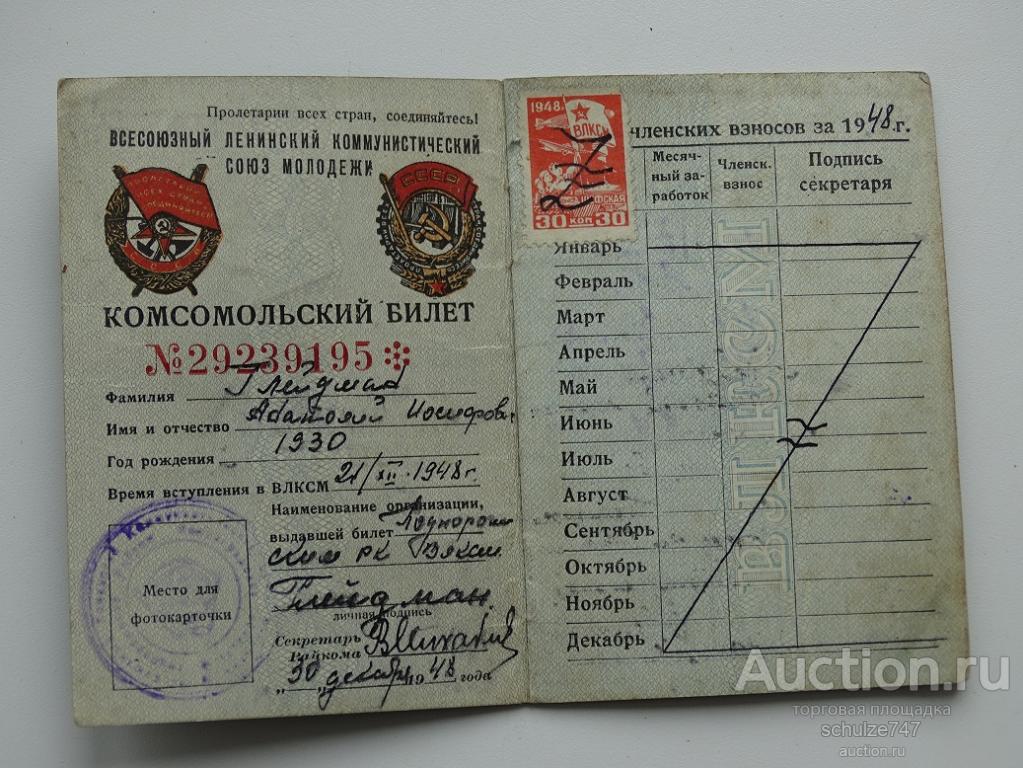 Пролетарии всех стран, соединяйтесь!
ВСЕСОЮЗНЫЙ ЛЕНИНСКИЙ КОММУНИСТИЧЕСКИЙ
СОЮЗ МОЛОДЕЖИ
СССР
КОМСОМОЛЬСКИЙ БИЛЕТ
№ 29239195
Фамилия Глейдман
Имя и отчество Анатолий Иосифов
Год рождения 1930
Время вступления в ВЛКСМ 21/XII-1948 г.
Наименование организации,
выдавшей билет
РК
Место для
фотокарточки
Глейдман
личная подпись
Секретарь
Райкома
„30" декабр 1948 года
1948
ВЛКСМ
30 КОП 30
членских взносов за 1948 г.
Месяч-
ный за-
работок
Членск.
взнос
Подпись
секретаря
Январь
Февраль
Март
Апрель
Май
Июнь
Июль
Август
Сентябрь
Октябрь
Ноябрь
Декабрь
ВЛКСМ
Auction.ru
торговая площадка
schulze747
auction.ru